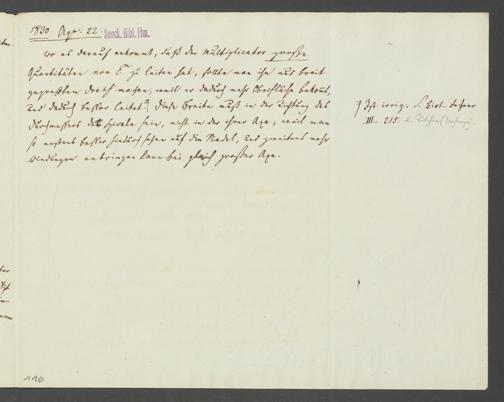 1830. Apr. 22. Senck. Bibl. Ffm.
Wo es darauf ankommt, daß der Multiplicator große
Quantitäten von E zu leiten hat, sollte man ihn aus breit
gepreßtem Draht machen, weil er dadurch mehr Oberfläche bekomt,
und dadurch besser leitet. Diese Breite muß in der Richtung des
Durchmessers der Spirale sein, nicht in der ihrer Axe; weil man
so erstens besser hindurch sehen auf die Nadel, und zweitens mehr
Windungen anbringen kann bei gleich großer Axe.
Ist irrig. S. Biot. Fechner
III. 215.
110